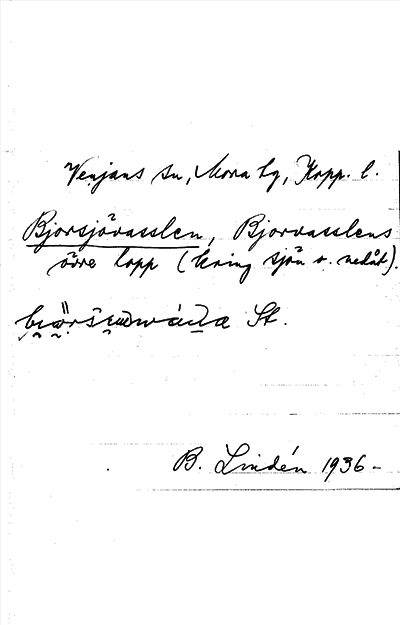 Venjans sn, Mora tg, Kopp. l.
Bjorsjövasslen, Bjorvasslens
övre lopp (kring sjön o. nedåt).
St.
B. Lindén 1936-